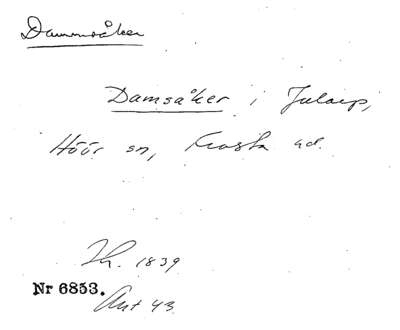 Dammsåker
Damsåker i Jularp,
Höör sn, Frosta hd.
Zh. 1839
Nr 6853.
Ant 43